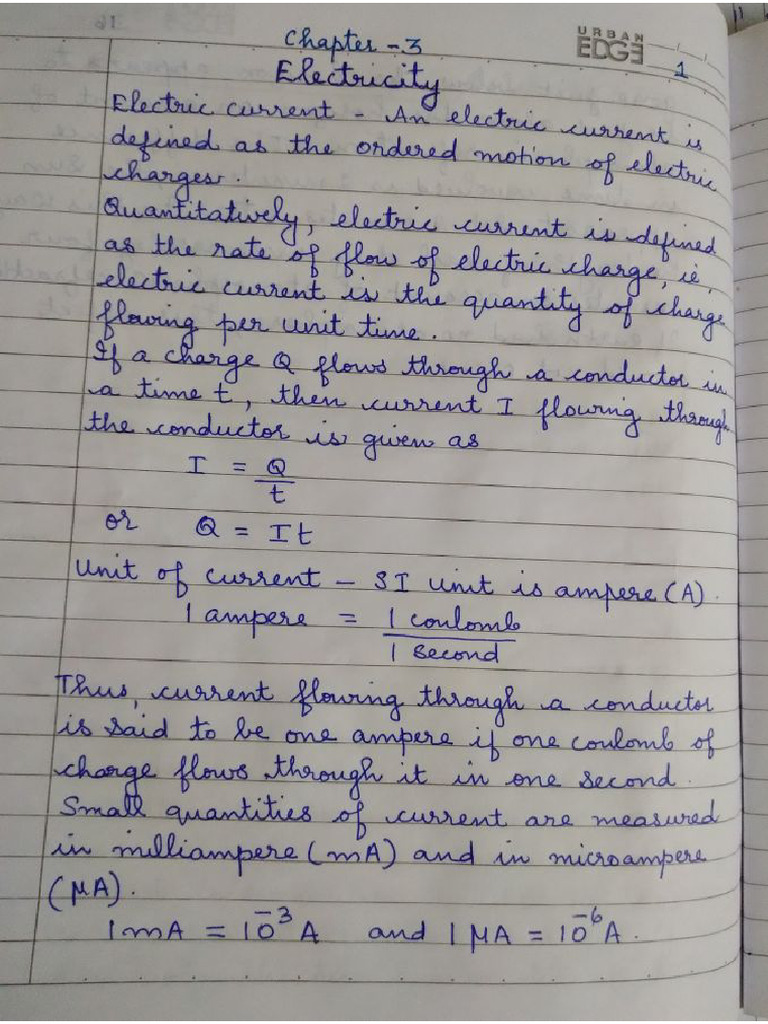 Chapter - 3
URBAN
EDGE
1
Electricity
Electric current - An electric current is
defined as the ordered motion of electric
charges.
Quantitatively, electric current is defined
as the rate of flow of electric charge, ie,
electric current is the quantity of charge
flowing per unit time.
If a charge Q flows through a conductor in
a time t, then current I flowing through
the conductor is given as
I = Q
t
or Q = It
Unit of current - SI unit is ampere (A).
1 ampere = 1 coulomb
1 second
Thus, current flowing through a conductor
is said to be one ampere if one coulomb of
charge flows through it in one second.
Small quantities of current are measured
in milliampere (mA) and in microampere
(μA).
1mA = 10⁻³ A and 1 μA = 10⁻⁶ A.